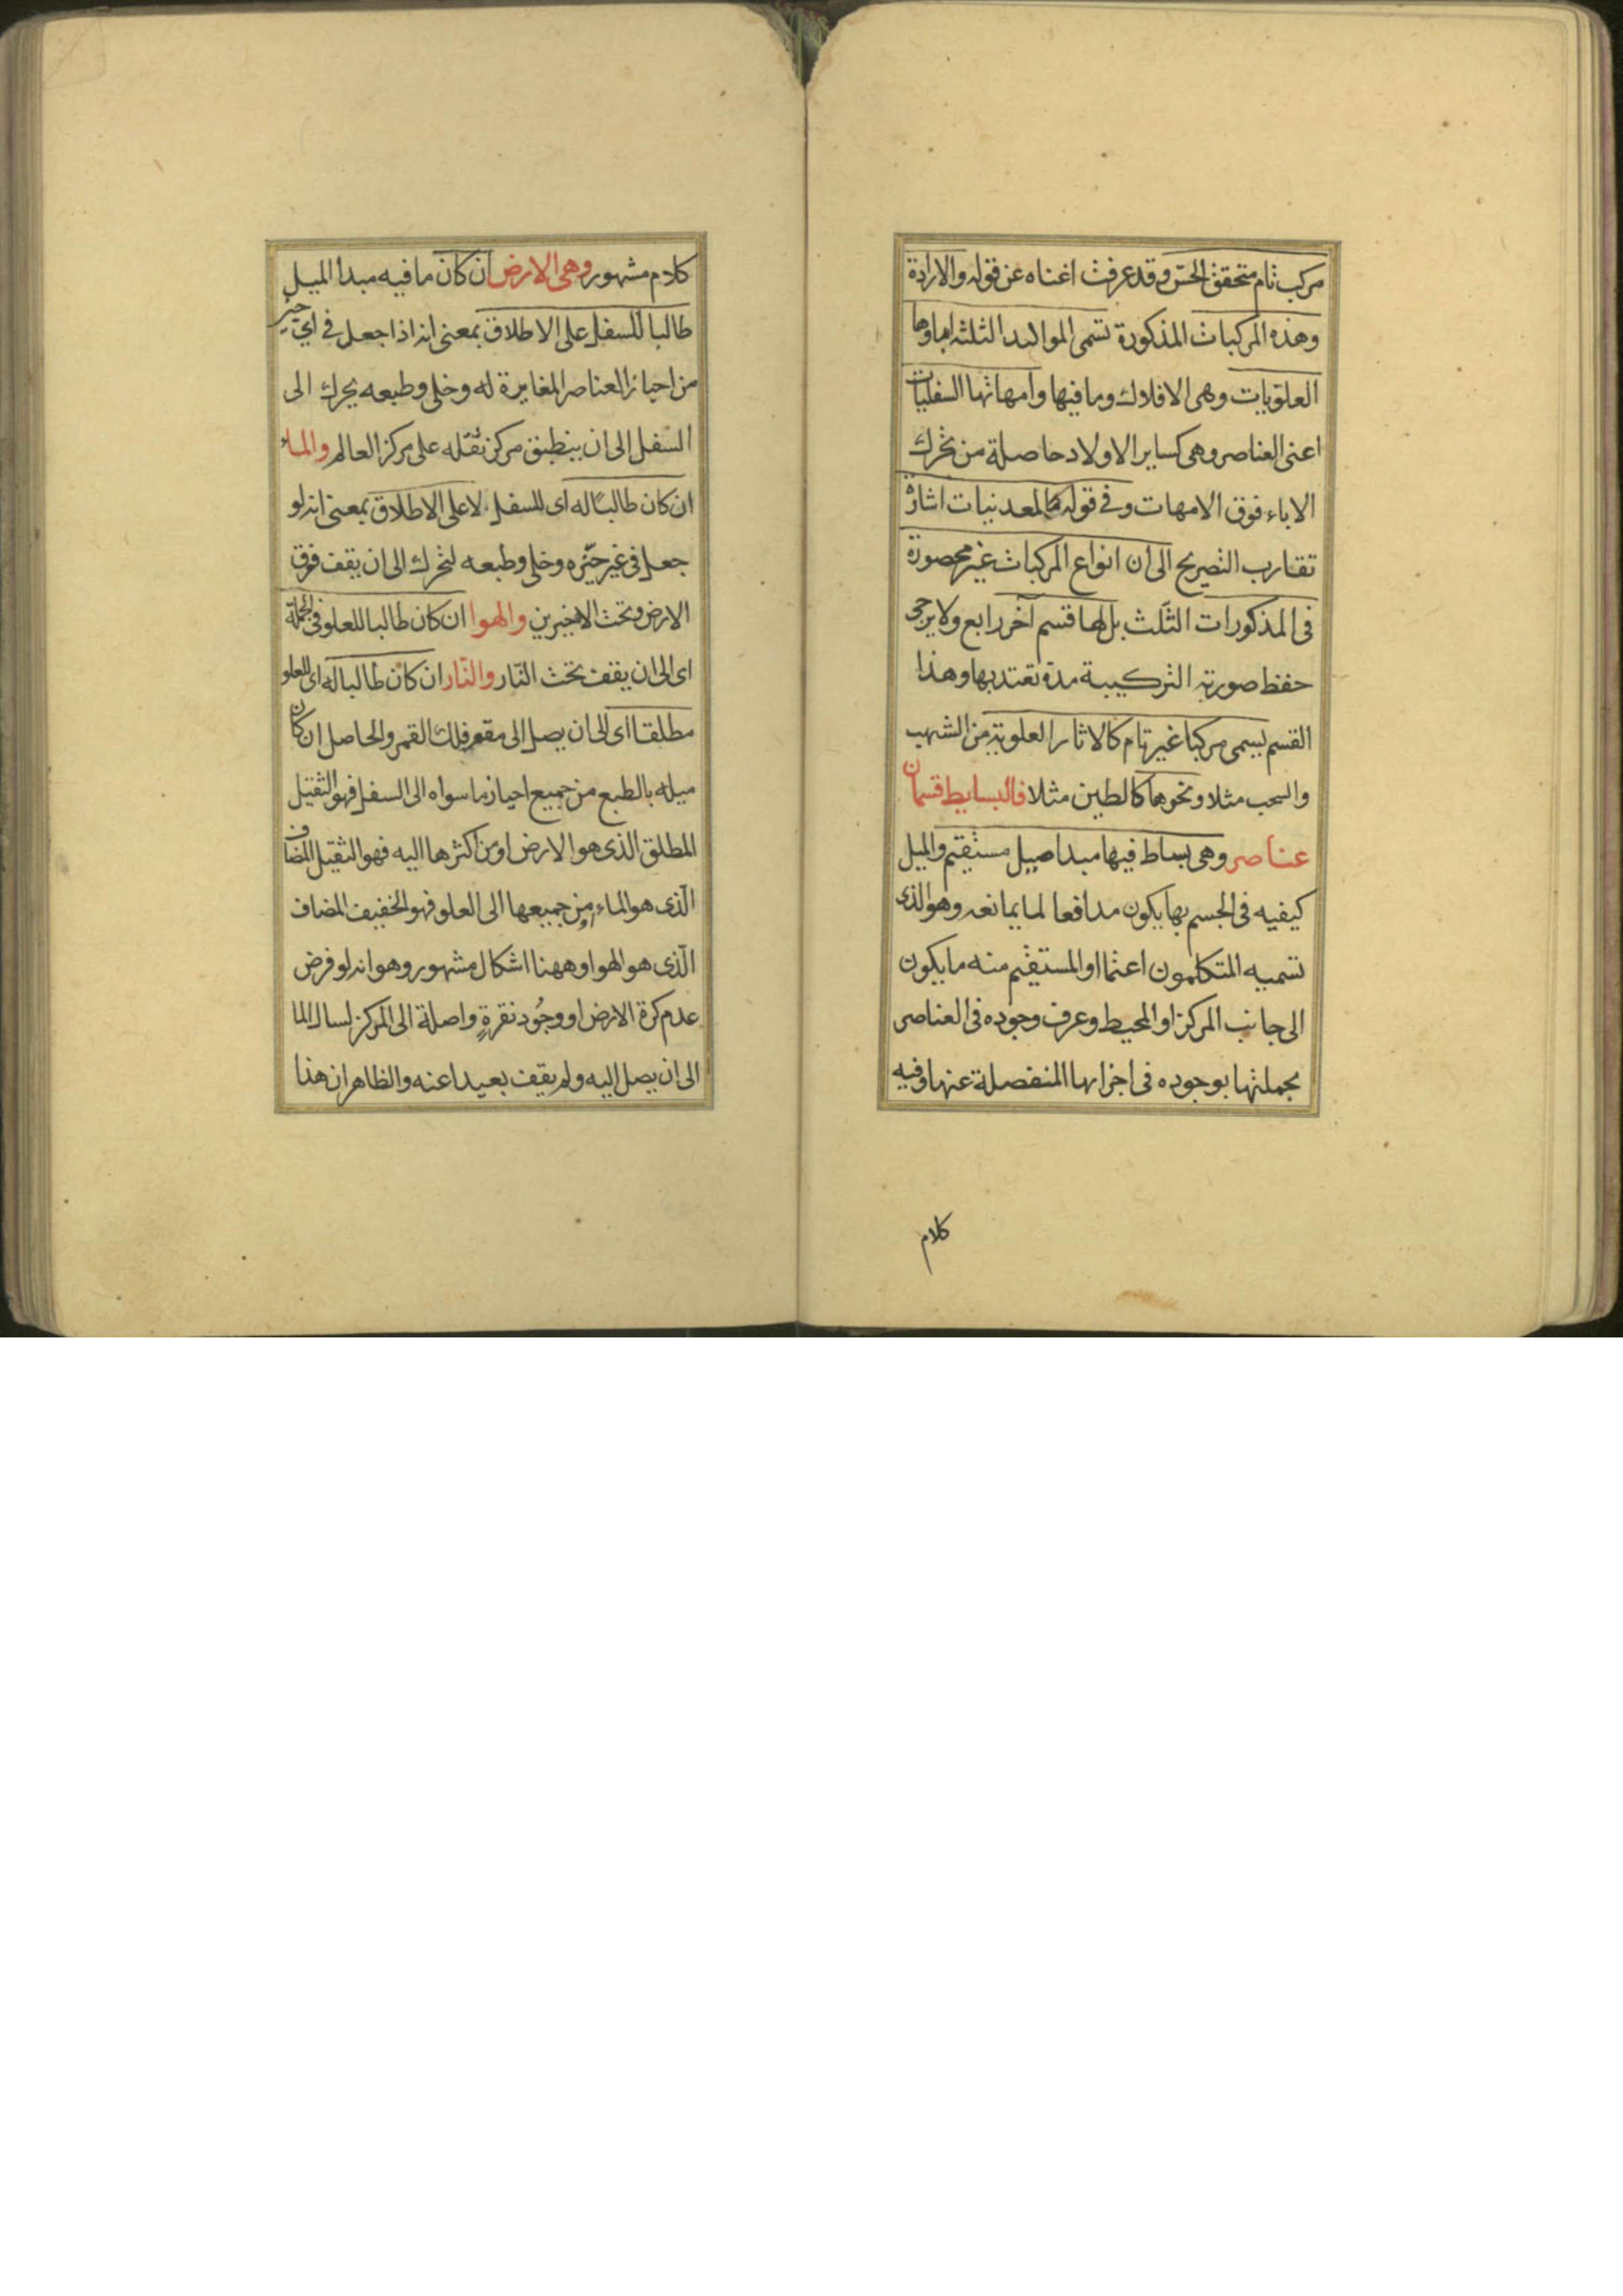 مركب تام متحقق الحس وقد عرفت اغناه عن قوله والارادة
وهذه المركبات المذكورة تسمى المواليد الثلثه اباوها
العلويات وهى الافلاك وما فيها وامهاتها السفليات
اعنى العناصر وهى كساير الاولاد حاصلة من تحرك
الاباء فوق الامهات وفى قوله كالمعدنيات اشارة
تقارب التصريح الى ان انواع المركبات غير محصورة
فى المذكورات الثلث بل لها قسم آخر رابع ولا يرجى
حفظ صورته التركيبية مدة تعتد بها وهذا
القسم يسمى مركبا غير تام كالاثار العلوية من الشهب
والسحب مثلا ونحوها كالطين مثلا فالبسايط قسمان
عناصر وهى بساط فيها مبدا ميل مستقيم والميل
كيفيه فى الجسم بها يكون مدافعا لما يمانعه وهو الذى
تسميه المتكلمون اعتمادا والمستقيم منه ما يكون
الى جانب المركز او المحيط وعرف وجوده فى العناصر
بجملتها بوجوده فى اجزائها المنفصلة عنها وفيه
كلام
كلام مشهور وهى الارض ان كان ما فيه مبدأ الميل
طالبا للسفل على الاطلاق بمعنى انه اذا جعل فى اى حيز
من احياز العناصر المغايرة له وخلى وطبعه يحرك الى
السفل الى ان ينطبق مركز ثقله على مركز العالم والماء
ان كان طالبًا له اى للسفل لا على الاطلاق بمعنى انه لو
جعل فى غير حيّزه وخلى وطبعه لتحرك الى ان يقف فوق
الارض وتحت الاخيرين والهوا ان كان طالبا للعلو فى الجملة
اى الى ان يقف تحت النّار والنّار ان كان طالبا له اى للعلو
مطلقا اى الى ان يصل الى مقعر فلك القمر والحاصل ان كان
ميله بالطبع من جميع احياز ما سواه الى السفل فهو الثقيل
المطلق الذى هو الارض او من اكثرها اليه فهو الثقيل المضاف
الّذى هو الماء او من جميعها الى العلو فهو الخفيف المضاف
الّذى هو الهوا وههنا اشكال مشهور وهو انه لو فرض
عدم كرة الارض او وجُود نقرةٍ واصلة الى المركز لسال الما
الى ان يصل اليه ولم يقف بعيدا عنه والظاهر ان هذا